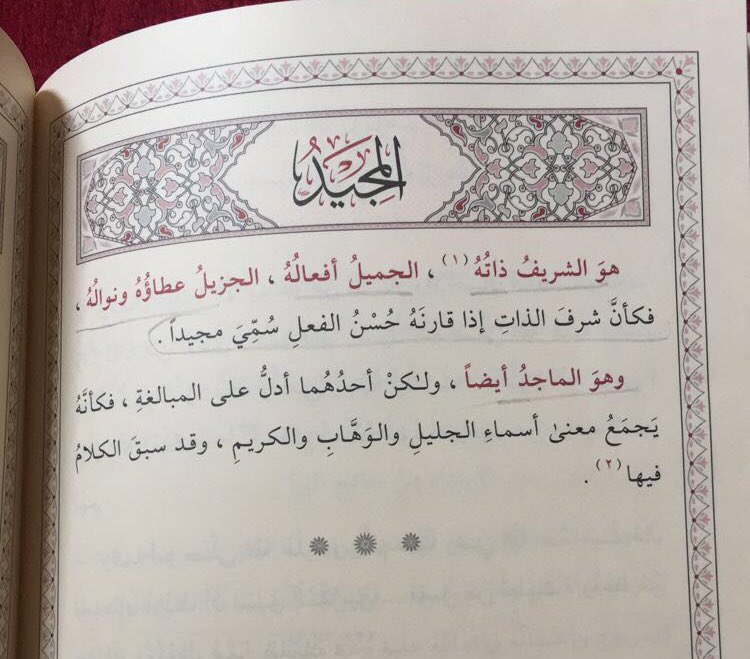 المَجِيْدُ
هوَ الشريفُ ذاتُهُ (١) ، الجميلُ أفعالُهُ ، الجزيلُ عطاؤُهُ ونوالُهُ ،
فكأنَّ شرفَ الذاتِ إذا قارنَهُ حُسْنُ الفعلِ سُمِّيَ مجيداً .
وهوَ الماجدُ أيضاً ، ولـٰكنْ أحدُهُما أدلُّ على المبالغةِ ، فكأنَّهُ
يَجمَعُ معنىٰ أسماءِ الجليلِ والوَهَّابِ والكريمِ ، وقد سبقَ الكلامُ
فيها (٢) .